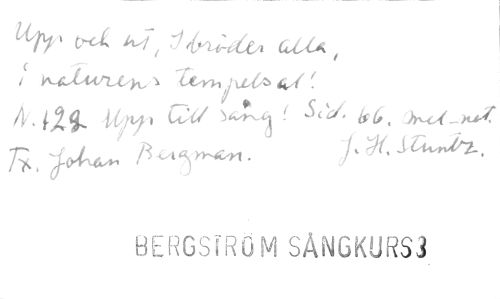 Upp och ut, I bröder alla,
i naturens tempelsal!
N. 122 Upp till sång! Sid. 66. mel-not.
Tx. Johan Bergman. J. H. Stuntz.
BERGSTRÖM SÅNGKURS 3